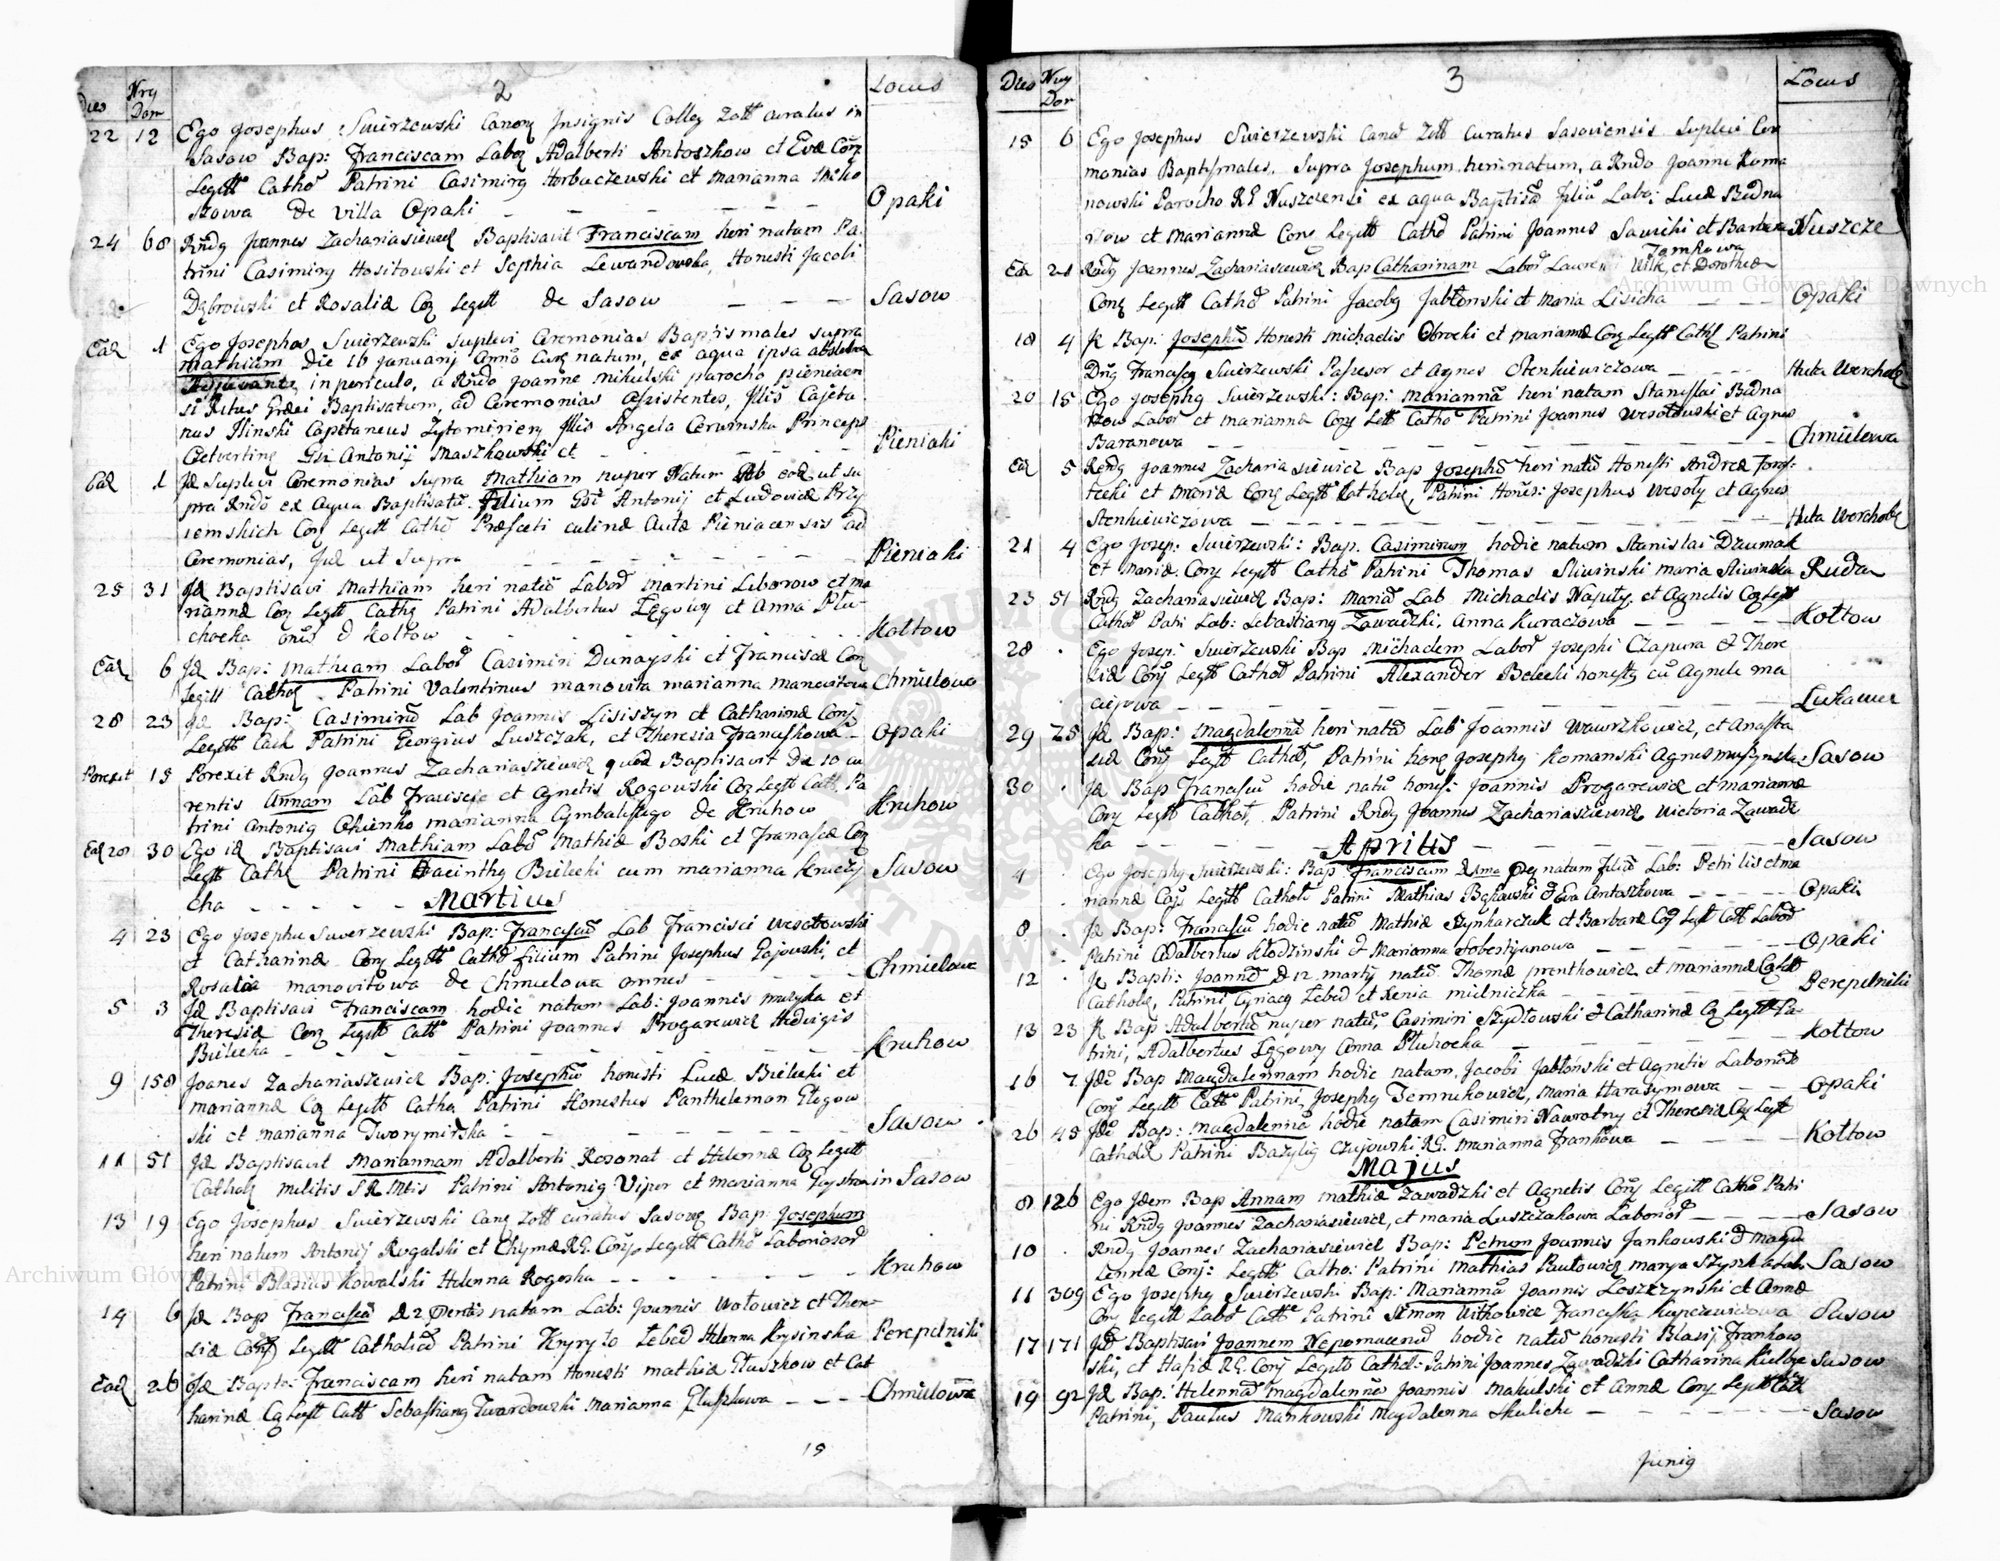 2
Dies Nrg Dom Locus
22 12 Ego Josephus Swierzewski Canon Insignis Colleg Zott curatus in
Sasow Bap: Franciscam Labor Adalberti Antoszkow et Evæ Conj
Legitt Catho Patrini Casimirg Horbaczewski et Marianna
de villa Opaki Opaki
24 68 Rndg Joannes Zachariasiewicz Baptisavit Franciscam heri natam Pa
trini Casimirg Hositowski et Sophia Lewandowska, Honesti Jacobi
Dąbrowski et Rosaliæ Conj Legitt de Sasow Sasow
Ead 1 Ego Josephus Swierzewski suplevi Ceremonias Baptismales supra
Mathiam Die 16 January Anno natum, ex aqua ipsa
in periculo, a Rndo Joanne Mikulski parocho Pieniacen
si Ritus Græci Baptisatum, ad Ceremonias assistentes, Illis Cajeta
nus Ilinski Capitaneus Zytomirien Illis Angela Cerwinska Princeps
Czetverting Gsi Antonij Maszkowski et Pieniaki
Ead 1 Id Suplevi Ceremonias supra Mathiam nuper Natum ab eod ut su
pra Rndo ex Aqua Baptisatum filium Gsi Antonij et Ludovicæ Przy
iemskich Conj Legitt Catho Præfecti culinæ Aulæ Pieniacensis ad
Ceremonias, Iid ut supra Pieniaki
25 31 Id Baptisavi Mathiam heri natum Labor Martini Liborow et Ma
riannæ Conj Legitt Catho Patrini Adalbertus Łęgowy et Anna Plu
chocka Kołtow Kołtow
Ead 6 Id Bap: Mathiam Labor Casimiri Dunayski et Franciscæ Conj
Legitt Cathol Patrini Valentinus Manovita Marianna Manowitowa Chmielowa
28 23 Id Bap: Casimirum Lab Joannis Lisiszyn et Catharinæ Conj
Legitt Cath Patrini Georgius Luszczak, et Theresia Franuskowa Opaki
Porexit 15 Porexit Rndg Joannes Zachariaszewicz quod Baptisavit De 10 cu
rentis Annam Lab Francisci et Agnetis Rogowski Conj Legitt Cath Pa
trini Antonig Okienko Marianna Cymbalistego de Hruhow Hruhow
Ead 28 30 Ego id Baptisavi Mathiam Labo Mathiæ Boski et Franciscæ Conj
Legitt Cathl Patrini Hacinthg Bielecki cum Marianna Kniezy
cha Sasow
Martius
4 23 Ego Josephu Swierzewski Bap: Franciscum Lab Francisci Wesołowski
et Catharinæ Conj Legitt Catho filium Patrini Josephus Gajowski, et
Rosalia Manovitowa de Chmielowa omnes Chmielowa
5 3 Id Baptisavi Franciscam hodie natam Lab: Joannis Muzyka et
Theresiæ Conj Legitt Catt Patrini Joannes Progarewicz Hedvigis
Bielecka Hruhow
9 158 Joanes Zachariaszewicz Bap: Josephum honesti Lucæ Bielecki et
Mariannæ Conj Legitt Catho Patrini Honestus Panthelemon Glegow
ski et Marianna Tworymirska Sasow
11 51 Id Baptisavit Mariannam Adalberti Rozonat et Helennæ Conj Legitt
Catholi Militis Patrini Antonig Viper et Marianna in Sasow
13 19 Ego Josephus Swierzewski Cang Zott curatus Sasovg Bap: Josephum
heri natum Antonij Rogalski et Chymæ RG. Conj. Legitt Catho Laboriosor
Patrini Blasius Kowalski Helenna Rogoska Hruhow
14 6 Id Bap Franciscā natam Lab: Joannis Wołowicz et There
siæ Conj Legitt Catholicæ Patrini Kyryło Łebed Helenna Krysinska Perepelniki
Ead 26 Id Bapt: Franciscam heri natam Honesti Mathiæ Głuszkow et Cat
harinæ Cg Legitt Catt Sebastiang Twardowski Marianna Głuszkowa Chmielowa
19
3
Dies Nug Dom Locus
15 6 Ego Josephus Swierzewski Cano Zott Curatus Sasoviensis suplevi Cer
monias Baptismales, supra Josephum heri natum, a Rndo Joanne Roma
nowski Parocho RG Nuszcensi ex aqua Baptisatum filiū Lab: Lucæ Bidna
row et Mariannæ Conj Legitt Catho Patrini Joannes Sawicki et Barbara Nuszcze
Jamkowa
Ead 21 Rndg Joannes Zachariasiewicz Bap Catharinam Labor Laurenti Wilk et Dorotheæ
Conj Legitt Catho Patrini Jacobg Jabłonski et Maria Lisicha Opaki
18 4 Id Bap: Josephum Honesti Michaelis Obrocki et Mariannæ Conj Legitt Cathl Patrini
Dng Francisg Swierzewski Possesor et Agnes Stenkiewiczowa Huta Werchobg
20 15 Ego Josephg Swierzewski: Bap: Mariannā heri natam Stanislai Bidna
row Labor et Marianna Conj Lett Catho Patrini Joannes Wesołowski et Agnes
Baranowa Chmielowa
Ead 5 Rndg Joannes Zachariasiewicz Bap Josephū heri natū Honesti Andreæ
tecki et Mariæ Conj Legitt Catholig Patrini Hones: Josephus Wesoły et Agnes
Stenkiewiczowa Huta Werchobg
21 4 Ego Josep: Swierzewski: Bap. Casimirum hodie natum Stanislai Dzumak
et Mariæ Conj Legitt Catho Patrini Thomas Sliwinski Maria Sliwinska Ruda
23 51 Rndg Zachariasiewicz Bap: Mariā Lab Michaelis Naputy et Agnetis Cg Legitt
Catho Patri Lab: Sebastiang Zawadzki, Anna Kuraczowa Kołtow
28 Ego Josep: Swierzewski Bap Michaelem Labor Josephi Czapura et There
siæ Conj Legitt Cathol Patrini Alexander Bolecki honestg cū Agnete Ma
ciejowa Lukawiec
29 75 Id Bap: Magdalennā heri natā Lab Joannis Wawrzkowicz, et Anasta
siæ Conj Legitt Cathol, Patrini hong Josephg Komanski Agnes Sasow
30 Id Bap Franciscū hodie natū honest: Joannis Progarewicz et Mariannæ
Conj Legitt Cathol, Patrini Rndg Joannes Zachariasziewicz Victoria Zawadz
ka Sasow
Aprilis
4 Ego Josephg Swierzewski: Bap Franciscum natum filiū Lab: Petri Lis et Ma
riannæ Conj Legitt Cathol Patrini Mathias et Eva Antoszkowa Opaki
8 Id Bap: Franciscū hodie natū Mathiæ Szynkarczuk et Barbaræ Conj Legtt Catt Labor
Patrini Adalbertus Kłodzinski et Marianna Sobestyanowa Opaki
12 Id Bapti: Joannē D 12 Martij natū Thomæ Prenthowicz et Mariannæ Cg Legitt
Cathol, Patrini Cyriacg Łebed et Xenia Mielniczka Perepelniki
13 23 Id Bap Adalbertū nuper natū, Casimiri Szydłowski et Catharinæ Cg Legitt Pa
trini, Adalbertus Łęgowy Anna Pluhocka Kołtow
16 7 Idē Bap Magdalennam hodie natam Jacobi Jabłoński et Agnetis Laborios
Conj Legitt Catt Patrini Josephg Demnikowicz, Maria Harasymowa Opaki
26 45 Idē Bap: Magdalennā hodie natam Casimiri Nawrotny et Theresiæ Conj Legitt
Catholi Patrini Bazylig Czujowski RG. Marianna Frankowa Kołtow
Majus
8 126 Ego Idem Bap Annam Mathiæ Zawadzki et Agnetis Conj Legitt Catho Patri
ni Rndg Joannes Zachariasiewicz, et Maria Luszczakowa Laborios Sasow
10 Rndg Joannes Zachariasiewicz Bap: Petrum Joannis Jankowski et Magda
lennæ Conj: Legitt Catho: Patrini Mathias Pawłowicz Marya Sasow
11 309 Ego Josephg Swierzewski Bap: Mariannā Joannis Leszczynski et Annæ
Conj Legitt Labo Catt Patrini Simon Witkowicz Franciska Kupczewiczowa Sasow
17 171 Id Baptisavi Joannem Nepomucenū hodie natū honesti Blasij Frankow
ski, et Hafiæ RG. Conj Legitt Cathol: Patrini Joannes Zawadzki Catharina Sasow
19 92 Id Bap: Helennā Magdalennā Joannis Makulski et Annæ Conj Legitt Catt
Patrini, Paulus Mankowski Magdalenna Skulicha Sasow
Junig
Archiwum Główne Akt Dawnych
Archiwum Główne Akt Dawnych